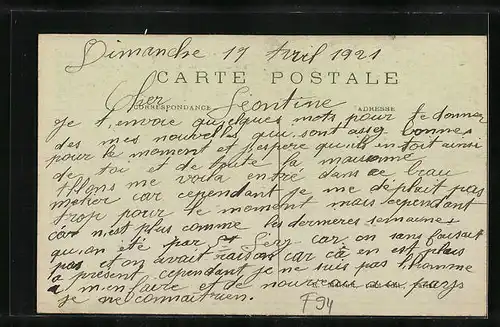 Dimanche 17 Avril 1921
CARTE POSTALE
CORRESPONDANCE
ADRESSE
Cher Léontine
Je t'envoie quelques mots pour te donner
des mes nouvelles qui sont assez bonnes
pour le moment et j'espère qu'ils en soit ainsi
de toi et de toute la maisonné
Allons me voila entré dans ce beau
métier car cependant je me déplait pas
trop pour te moment mais cependant
car n'est plus comme les dernieres semaines
qu'on été par car on sans faisait
pas et on avait raison car cà en est plus
à présent, cependant je ne suis pas l'homme
a m'en faire et de nouveau au pays
je ne connait rien.
F94